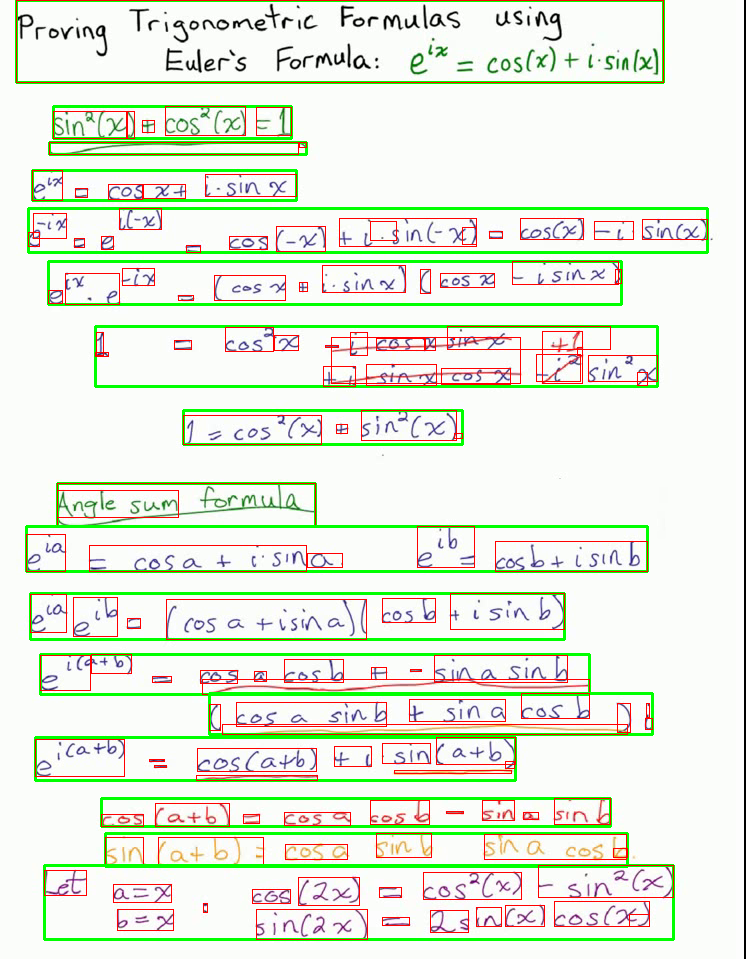 Proving Trigonometric Formulas using
Euler's Formula: e^{ix} = cos(x) + i·sin(x)
sin²(x) + cos²(x) = 1
e^{ix} = cos x + i·sin x
e^{-ix} = e^{i(-x)} = cos(-x) + i·sin(-x) = cos(x) - i sin(x).
e^{ix} · e^{-ix} = (cos x + i·sin x)(cos x - i sin x)
1 = cos² x - i cos x sin x +1
+ i sin x cos x - i² sin² x
1 = cos²(x) + sin²(x).
Angle sum formula
e^{ia} = cos a + i·sin a e^{ib} = cos b + i sin b
e^{ia} e^{ib} = (cos a + i sin a)(cos b + i sin b)
e^{i(a+b)} = cos a cos b + - sin a sin b
(cos a sin b + sin a cos b) i
e^{i(a+b)} = cos(a+b) + i sin(a+b).
cos(a+b) = cos a cos b - sin a sin b
sin(a+b) = cos a sin b sin a cos b.
Let a=x : cos(2x) = cos²(x) - sin²(x)
b=x sin(2x) = 2sin(x) cos(x)